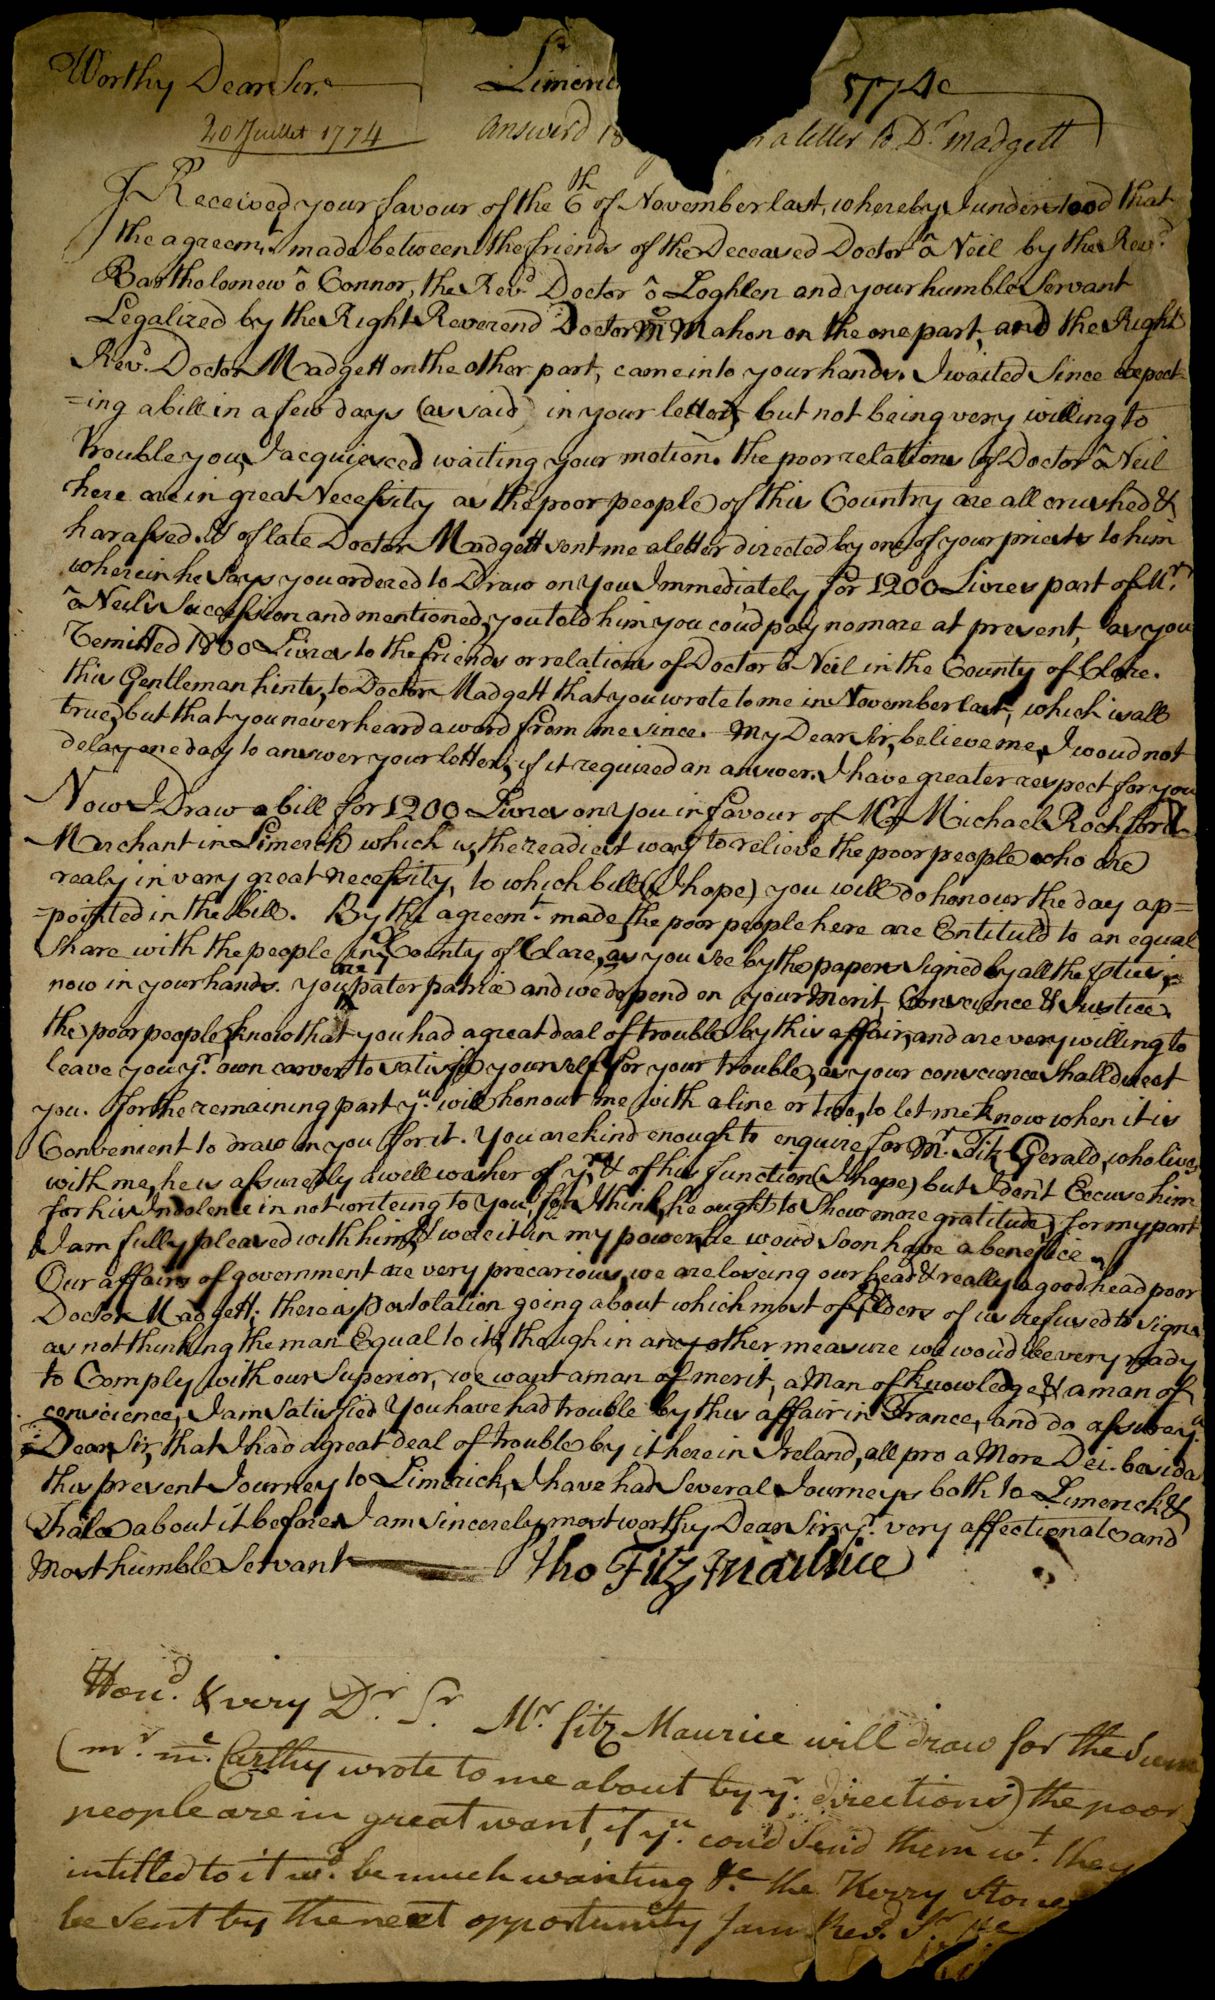 Worthy Dear Sir, Limeric 1774
20 Juillet 1774 answerd 18 a letter to Dr. Madgett
I Received your favour of the 6th of November last, whereby I understood that
the agreemt. made between the friends of the Deceased Doctor ô Neil by the Revd.
Bartholomew ô Connor, the Revd. Doctor ô Loghlen and your humble Servant
Legalized by the Right Reverend Doctor Mc Mahon on the one part, and the Right
Revd. Doctor Madgett on the other part, came into your hands. I waited Since expect-
=ing a bill in a few days (as said in your letter) but not being very willing to
trouble you, I acquiesced waiting your motion. the poor relations of Doctor ô Neil
here are in great Necessity as the poor people of this Country are all crushed &
harassed. & of late Doctor Madgett sent me a letter directed by one of your priests to him
wherein he Says you ordered to Draw on you Immediately for 1200 Livres part of Mr.
ô Neil's Succession and mentioned, you told him you cou'd pay no more at present, as you
remitted 1800 Livres to the friends or relations of Doctor ô Neil in the County of Clare.
this Gentleman hints, to Doctor Madgett that you wrote to me in November last, which is all
true, but that you never heard a word from me since. My Dear Sir, believe me, I wou'd not
delay one day to answer your letter, if it required an answer. I have greater respect for you
Now I Draw a bill for 1200 Livres on you in favour of Mr. Michael Rochford
Marchant in Limerick which is the readiest way to relieve the poor people who are
realy in very great necessity, to which bill (I hope) you will do honour the day ap=
=pointed in the bill. By the agreemt. made the poor people here are Entituld to an equal
Share with the people in ye County of Clare, as you see by the papers signed by all the
now in your hands. you are pater patriæ and we depend on your Merit, Conscience & Justice.
the poor people know that you had a great deal of trouble by this affair, and are very willing to
leave you yr. own carver to satisfie yourself for your trouble, as your conscience shall direct
you. for the remaining part yu. will honour me with a line or two, to let me know when it is
Convenient to draw on you for it. You are kind enough to enquire for Mr. Fitz Gerald, who lives
with me, he is assuredly a well wisher of yrs. & of his function (I hope) but I don't Excuse him
for his Indolence in not writeing to you, for I think, he ought to Shew more gratitude, for my part
I am fully pleased with him, & were it in my power, he wou'd soon have a benefice.
Our affairs of government are very precarious, we are loseing our head & really a good head poor
Doctor Madgett; there is Postolation going about which most of Elders of us refused to signe
as not thinking the man Equal to it, though in any other measure we wou'd be very ready
to Comply with our Superior, we want a man of merit, a Man of knowledge & a man of
conscience, I am Satisfied You have had trouble by this affair in France, and do assure yu.
Dear Sir, that I had a great deal of trouble by it here in Ireland, all pro a More Dei. beside
this present Journey to Limerick, I have had Several Journeys both to Limerick &
Trale about it before. I am sincerely most worthy Dear Sir yr. very affectionate and
Most humble Servant Tho Fitz Maurice
Hond. & very Dr. Sr. Mr. fitz Maurice will draw for the Sum
(mr. mc. Carthy wrote to me about by yr. directions) the poor
people are in great want, if yu. cou'd Send them wt. they
intitled to it wd. be much wanting &c. the Kerry Stones
be Sent by the next opportunity I am Revd. Sr. &c